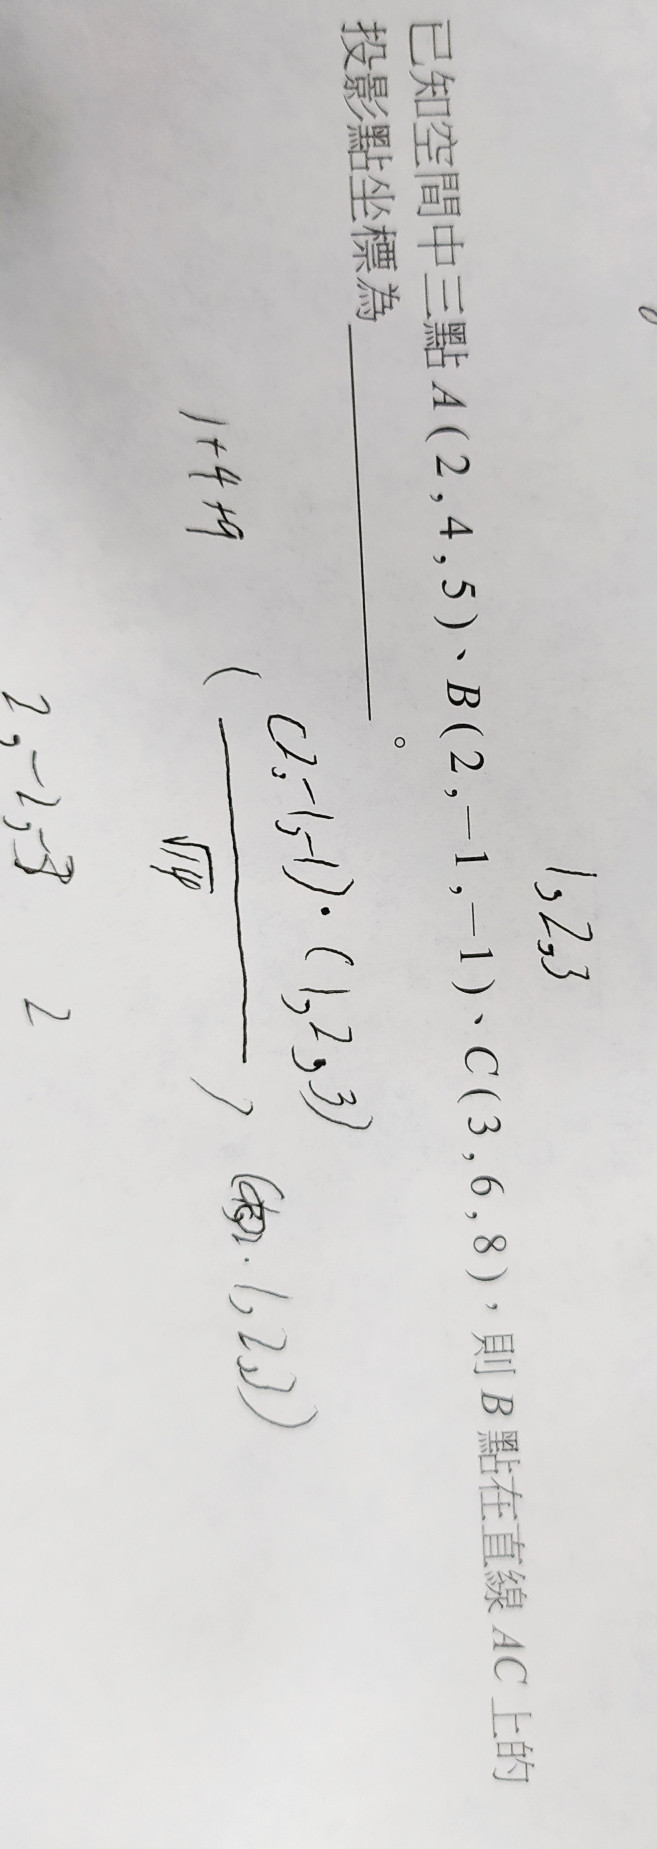 1,2,3
已知空間中三點A(2,4,5)、B(2,-1,-1)、C(3,6,8),則B點在直線AC上的
投影點坐標為＿＿＿＿＿＿。
(2,-1,-1)·(1,2,3)
1+4+9
√14
·1,2,3)
2